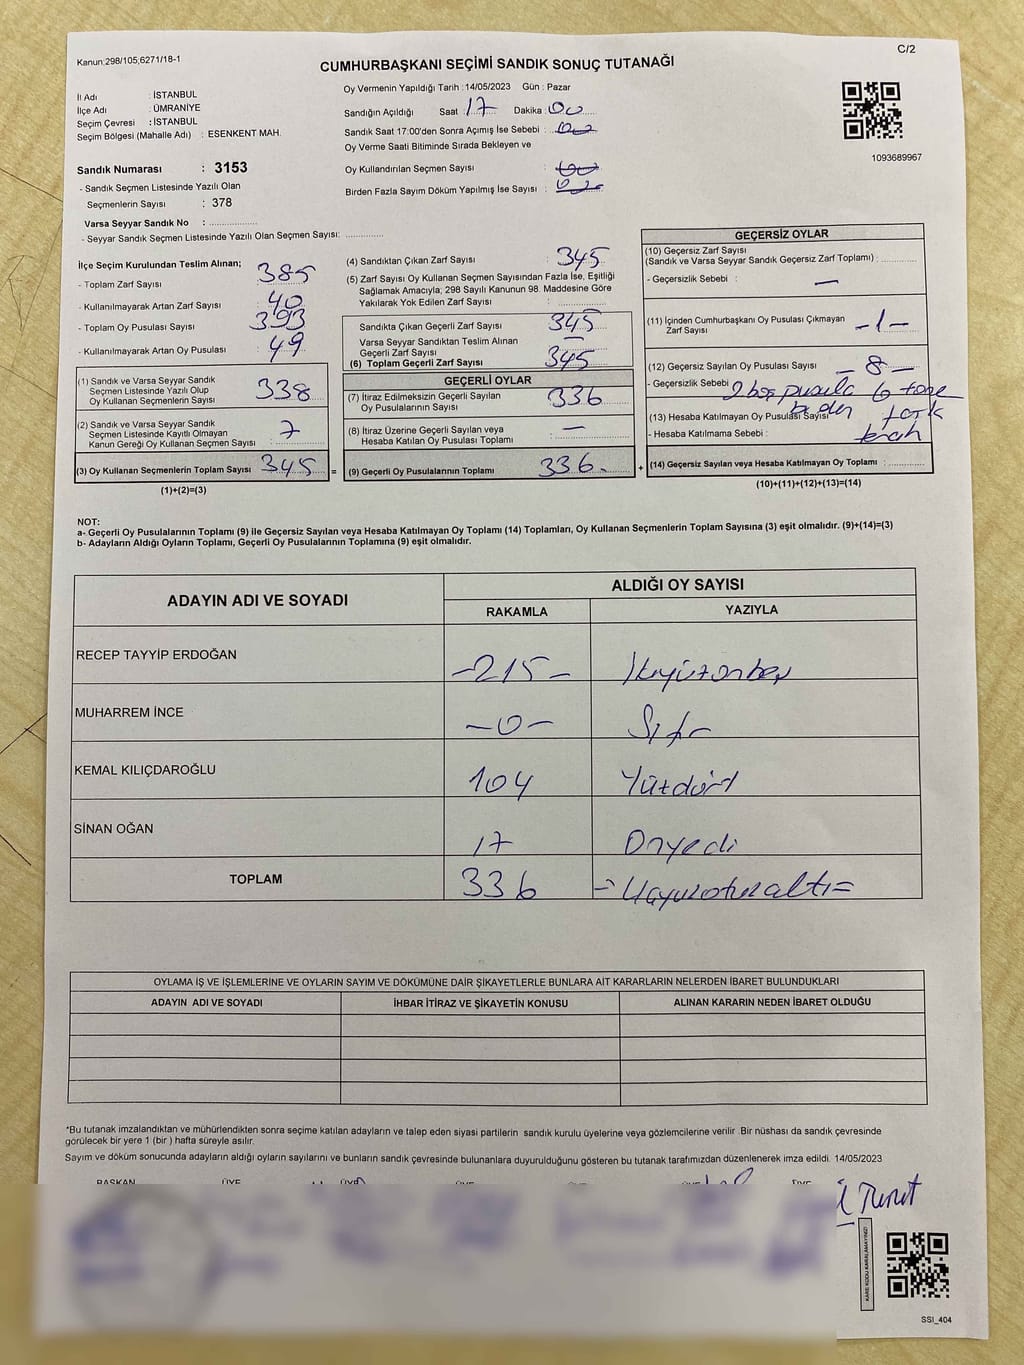 Kanun;298/105;6271/18-1
C/2
CUMHURBAŞKANI SEÇİMİ SANDIK SONUÇ TUTANAĞI
İl Adı : İSTANBUL
İlçe Adı : ÜMRANİYE
Seçim Çevresi : İSTANBUL
Seçim Bölgesi (Mahalle Adı) : ESENKENT MAH.
Oy Vermenin Yapıldığı Tarih : 14/05/2023 Gün : Pazar
Sandığın Açıldığı Saat : 17 Dakika : 00
Sandık Saat 17:00'den Sonra Açımış İse Sebebi :
Oy Verme Saati Bitiminde Sırada Bekleyen ve
Oy Kullandırılan Seçmen Sayısı :
Birden Fazla Sayım Döküm Yapılmış İse Sayısı :
1093689967
Sandık Numarası : 3153
- Sandık Seçmen Listesinde Yazılı Olan
Seçmenlerin Sayısı : 378
Varsa Seyyar Sandık No :
- Seyyar Sandık Seçmen Listesinde Yazılı Olan Seçmen Sayısı:
İlçe Seçim Kurulundan Teslim Alınan;
- Toplam Zarf Sayısı : 385
- Kullanılmayarak Artan Zarf Sayısı : 40
- Toplam Oy Pusulası Sayısı : 393
- Kullanılmayarak Artan Oy Pusulası : 49
(1) Sandık ve Varsa Seyyar Sandık
Seçmen Listesinde Yazılı Olup
Oy Kullanan Seçmenlerin Sayısı : 338
(2) Sandık ve Varsa Seyyar Sandık
Seçmen Listesinde Kayıtlı Olmayan
Kanun Gereği Oy Kullanan Seçmen Sayısı : 7
(3) Oy Kullanan Seçmenlerin Toplam Sayısı : 345 =
(1)+(2)=(3)
(4) Sandıktan Çıkan Zarf Sayısı : 345
(5) Zarf Sayısı Oy Kullanan Seçmen Sayısından Fazla İse, Eşitliği
Sağlamak Amacıyla; 298 Sayılı Kanunun 98. Maddesine Göre
Yakılarak Yok Edilen Zarf Sayısı :
Sandıkta Çıkan Geçerli Zarf Sayısı : 345
Varsa Seyyar Sandıktan Teslim Alınan
Geçerli Zarf Sayısı : —
(6) Toplam Geçerli Zarf Sayısı : 345
GEÇERLİ OYLAR
(7) İtiraz Edilmeksizin Geçerli Sayılan
Oy Pusulalarının Sayısı : 336
(8) İtiraz Üzerine Geçerli Sayılan veya
Hesaba Katılan Oy Pusulası Toplamı : —
(9) Geçerli Oy Pusulalarının Toplamı : 336 +
GEÇERSİZ OYLAR
(10) Geçersiz Zarf Sayısı
(Sandık ve Varsa Seyyar Sandık Geçersiz Zarf Toplamı) :
- Geçersizlik Sebebi : —
(11) İçinden Cumhurbaşkanı Oy Pusulası Çıkmayan
Zarf Sayısı : -1-
(12) Geçersiz Sayılan Oy Pusulası Sayısı : -8-
- Geçersizlik Sebebi : 2 boş pusula 6 tane
birden fazla
(13) Hesaba Katılmayan Oy Pusulası Sayısı :
- Hesaba Katılmama Sebebi :
(14) Geçersiz Sayılan veya Hesaba Katılmayan Oy Toplamı :
(10)+(11)+(12)+(13)=(14)
NOT:
a- Geçerli Oy Pusulalarının Toplamı (9) ile Geçersiz Sayılan veya Hesaba Katılmayan Oy Toplamı (14) Toplamları, Oy Kullanan Seçmenlerin Toplam Sayısına (3) eşit olmalıdır. (9)+(14)=(3)
b- Adayların Aldığı Oyların Toplamı, Geçerli Oy Pusulalarının Toplamına (9) eşit olmalıdır.
ADAYIN ADI VE SOYADI
ALDIĞI OY SAYISI
RAKAMLA YAZIYLA
RECEP TAYYİP ERDOĞAN -215- İkiyüzonbeş
MUHARREM İNCE -0- Sıfır
KEMAL KILIÇDAROĞLU 104 Yüzdört
SİNAN OĞAN 17 Onyedi
TOPLAM 336 =Üçyüzotuzaltı=
OYLAMA İŞ VE İŞLEMLERİNE VE OYLARIN SAYIM VE DÖKÜMÜNE DAİR ŞİKAYETLERLE BUNLARA AİT KARARLARIN NELERDEN İBARET BULUNDUKLARI
ADAYIN ADI VE SOYADI İHBAR İTİRAZ VE ŞİKAYETİN KONUSU ALINAN KARARIN NEDEN İBARET OLDUĞU
*Bu tutanak imzalandıktan ve mühürlendikten sonra seçime katılan adayların ve talep eden siyasi partilerin sandık kurulu üyelerine veya gözlemcilerine verilir .Bir nüshası da sandık çevresinde
görülecek bir yere 1 (bir ) hafta süreyle asılır.
Sayım ve döküm sonucunda adayların aldığı oyların sayılarını ve bunların sandık çevresinde bulunanlara duyurulduğunu gösteren bu tutanak tarafımızdan düzenlenerek imza edildi. 14/05/2023
BAŞKAN ÜYE ÜYE ÜYE ÜYE ÜYE ÜYE
KARE KODU KARALAMAYINIZ!
SSI_404